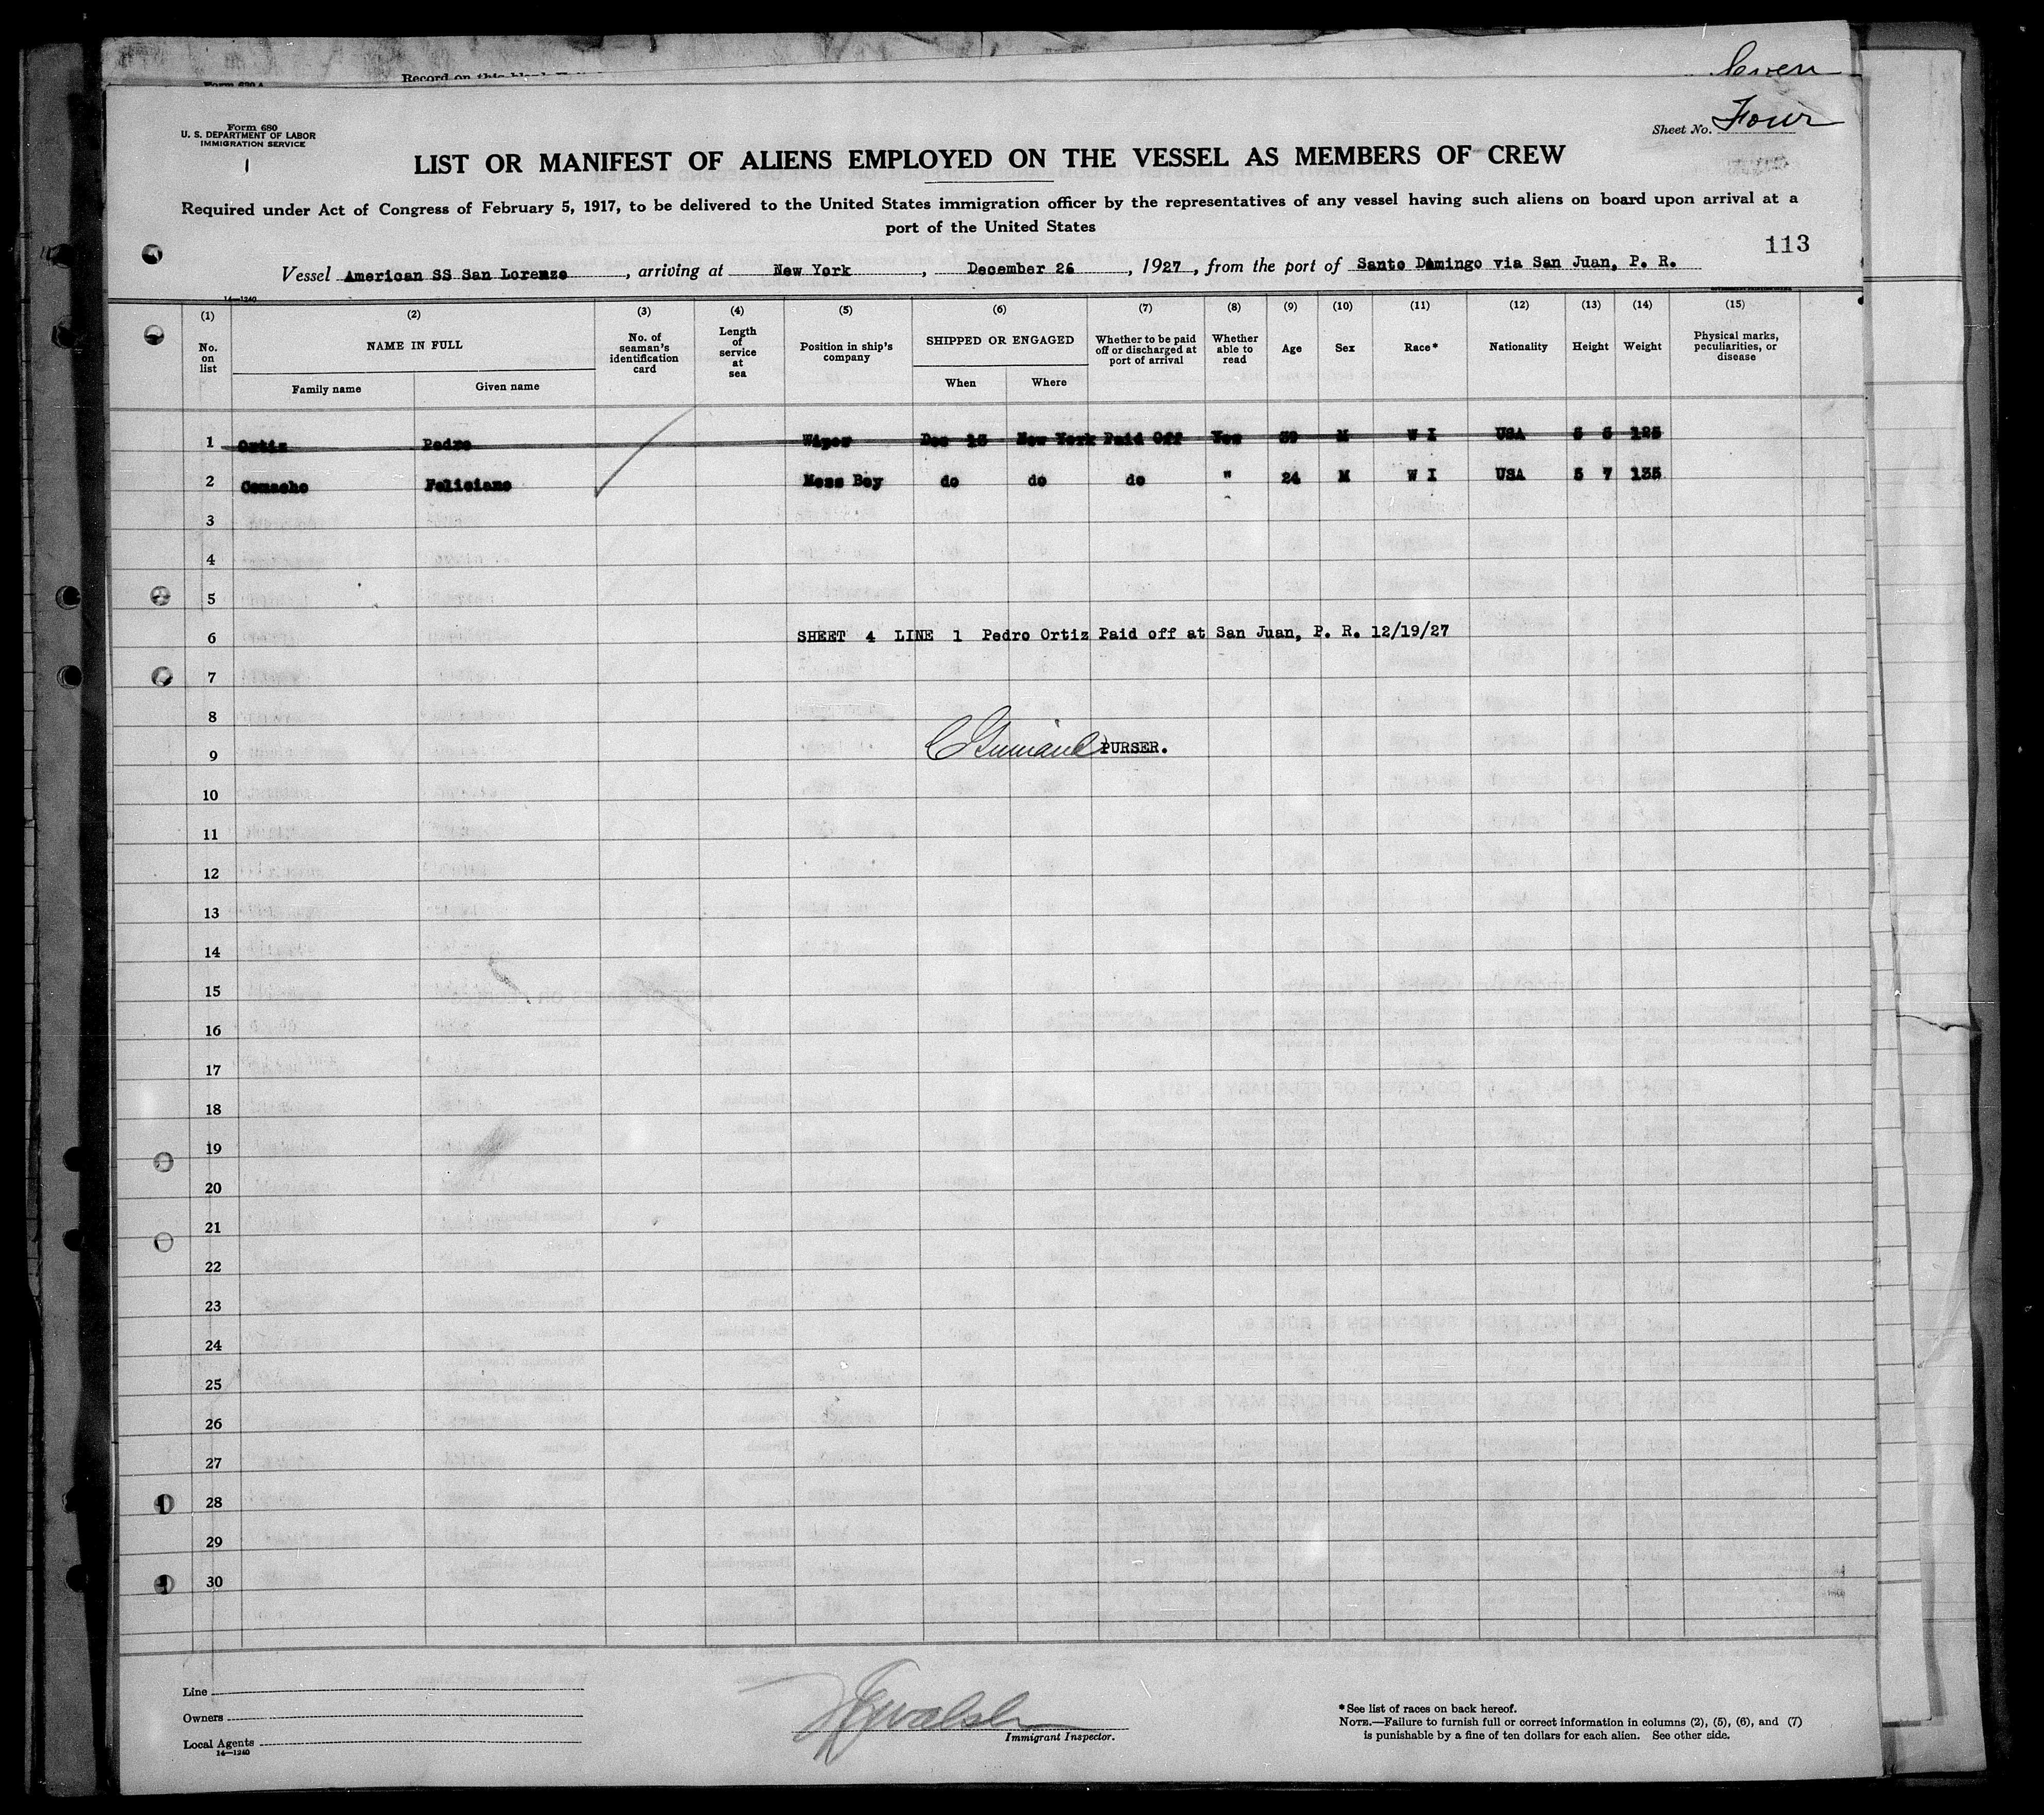 Record on this blank
Form 680 A
Form 680
U. S. DEPARTMENT OF LABOR
IMMIGRATION SERVICE
1
Sheet No. Four
LIST OR MANIFEST OF ALIENS EMPLOYED ON THE VESSEL AS MEMBERS OF CREW
Required under Act of Congress of February 5, 1917, to be delivered to the United States immigration officer by the representatives of any vessel having such aliens on board upon arrival at a
port of the United States
113
Vessel American SS San Lorenzo, arriving at New York, December 26, 1927, from the port of Santo Domingo via San Juan, P. R.
14—1240
(1) (2) (3) (4) (5) (6) (7) (8) (9) (10) (11) (12) (13) (14) (15)
No. on list NAME IN FULL Family name Given name No. of seaman's identification card Length of service at sea Position in ship's company SHIPPED OR ENGAGED When Where Whether to be paid off or discharged at port of arrival Whether able to read Age Sex Race* Nationality Height Weight Physical marks, peculiarities, or disease
1 Ortiz Pedro Wiper Dec 15 New York Paid Off Yes 39 M W I USA 5 5 125
2 Camacho Feliciano Mess Boy do do do " 24 M W I USA 5 7 135
3
4
5
6 SHEET 4 LINE 1 Pedro Ortiz Paid off at San Juan, P. R. 12/19/27
7
8
9 PURSER.
10
11
12
13
14
15
16
17
18
19
20
21
22
23
24
25
26
27
28
29
30
Line
Owners
Local Agents
14—1240
Walsh
Immigrant Inspector.
*See list of races on back hereof.
NOTE.—Failure to furnish full or correct information in columns (2), (5), (6), and (7)
is punishable by a fine of ten dollars for each alien. See other side.